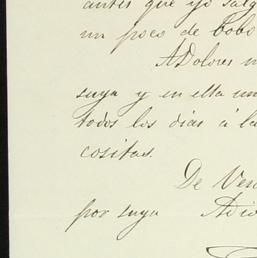 antes que yo salg
un poco de bobo
A Dolores m
suya y en ella un
todos los dias á la
cositas.
De Ven
por suya Adio